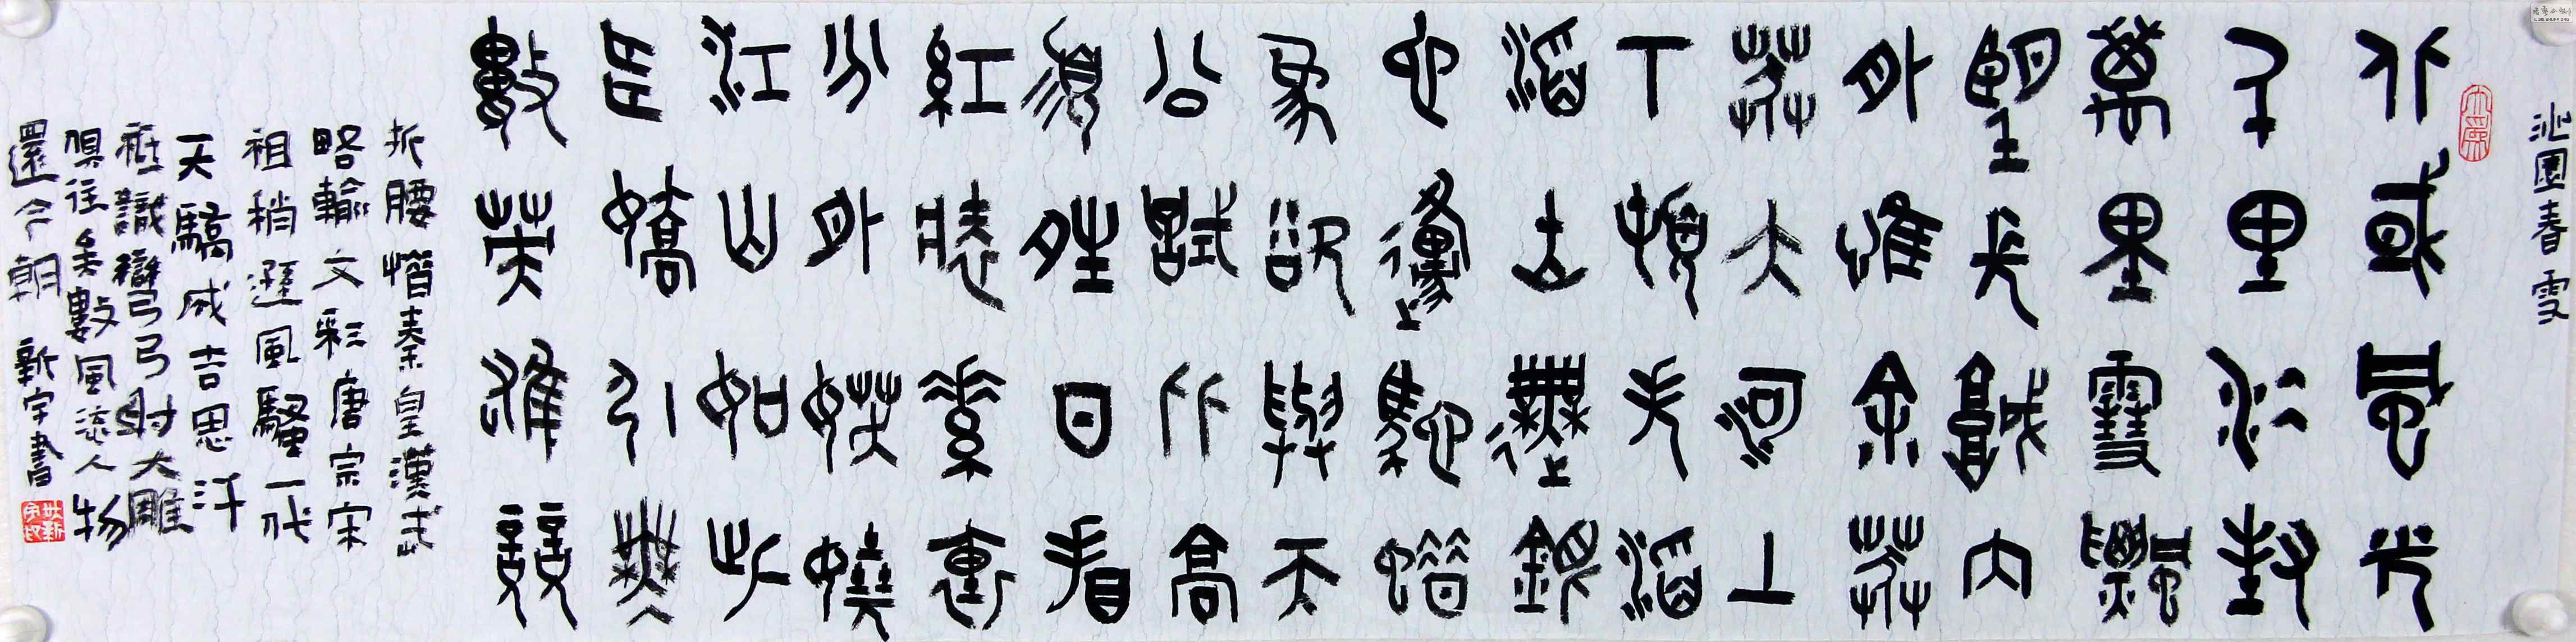 沁園春 雪
北國風光
千里冰封
萬里雪飄
望長城內
外惟余莽
莽大河上
下頓失滔
滔山舞銀
蛇原馳蠟
象欲與天
公試比高
須晴日看
紅裝素裹
分外妖嬈
江山如此
多嬌引無
數英雄競
折腰惜秦皇漢武
略輸文彩唐宗宋
祖稍遜風騷一代
天驕成吉思汗
祗識彎弓射大雕
俱往矣數風流人物
還今朝 新宇書